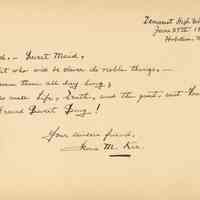 Demarest High Sch
June 25th 19
Hoboken, N
d, – Sweet Maid,
t who will be clever
do noble things, –
them all day long;
make Life, Death, and the great, vast For
Grand Sweet Song!
Your sincere friend,
M.